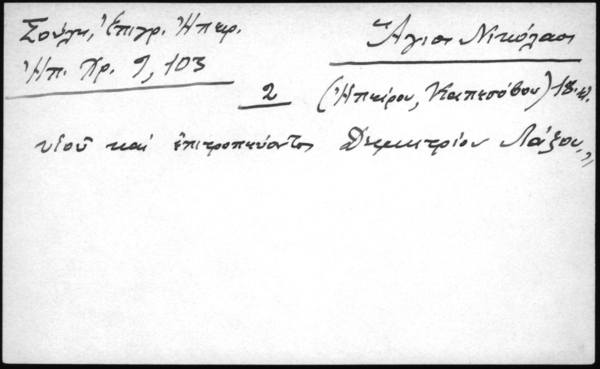 Σούλη, Ἐπιγρ. Ἠπειρ.
Ἠπ. Χρ. 9, 103
Ἅγιος Νικόλαος
2 (Ἠπείρου, Καπεσόβου) 18.
υἱοῦ καὶ ἐπιτροπεύοντος Δημητρίου Λάξου..,